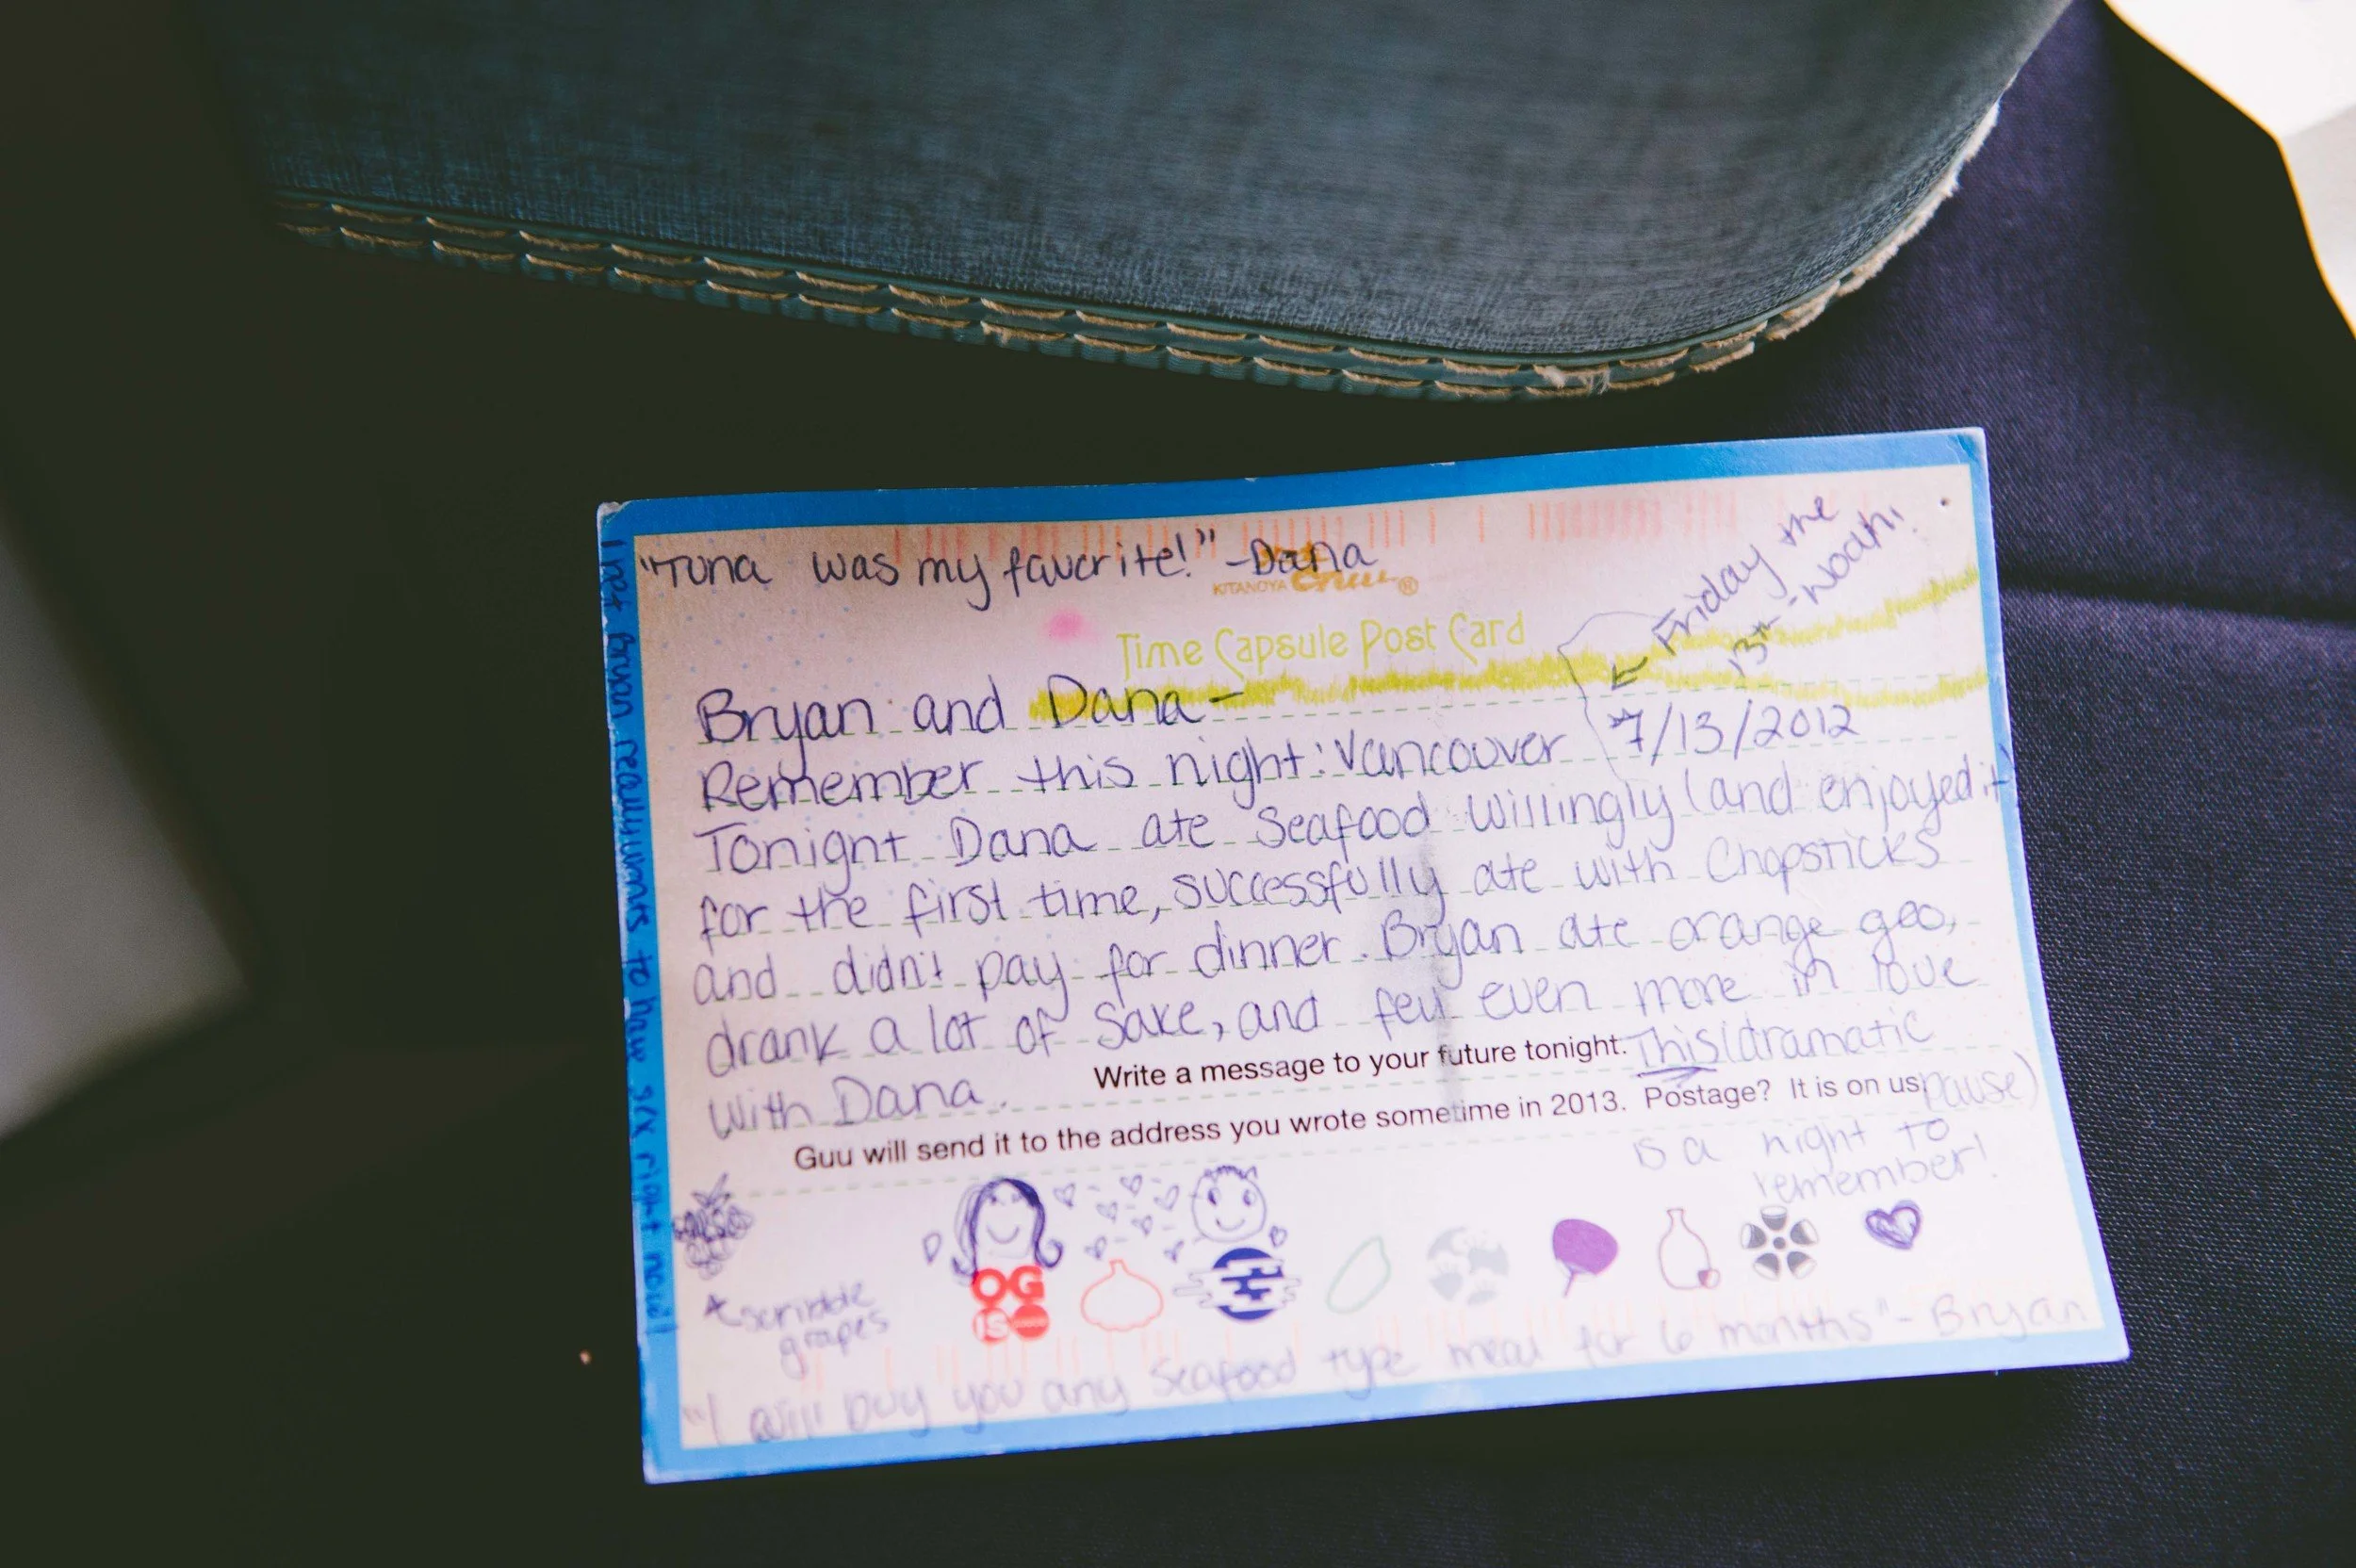 "Tuna was my favorite!" -Dana
KITANOYA Guu ®
Time Capsule Post Card
← Friday the
13th - woah!
Bryan and Dana-
Remember this night: Vancouver 7/13/2012
Tonight Dana ate Seafood willingly (and enjoyed it)
for the first time, successfully ate with Chopsticks
and didn't pay for dinner. Bryan ate orange goo,
drank a lot of Sake, and fell even more in love
with Dana.
Write a message to your future tonight.
Guu will send it to the address you wrote sometime in 2013. Postage? It is on us
This (dramatic
pause)
is a night to
remember!
scribble
grapes
OG
is
"I will buy you any Seafood type meal for 6 months" - Bryan
bryan really wants to have sex right now!